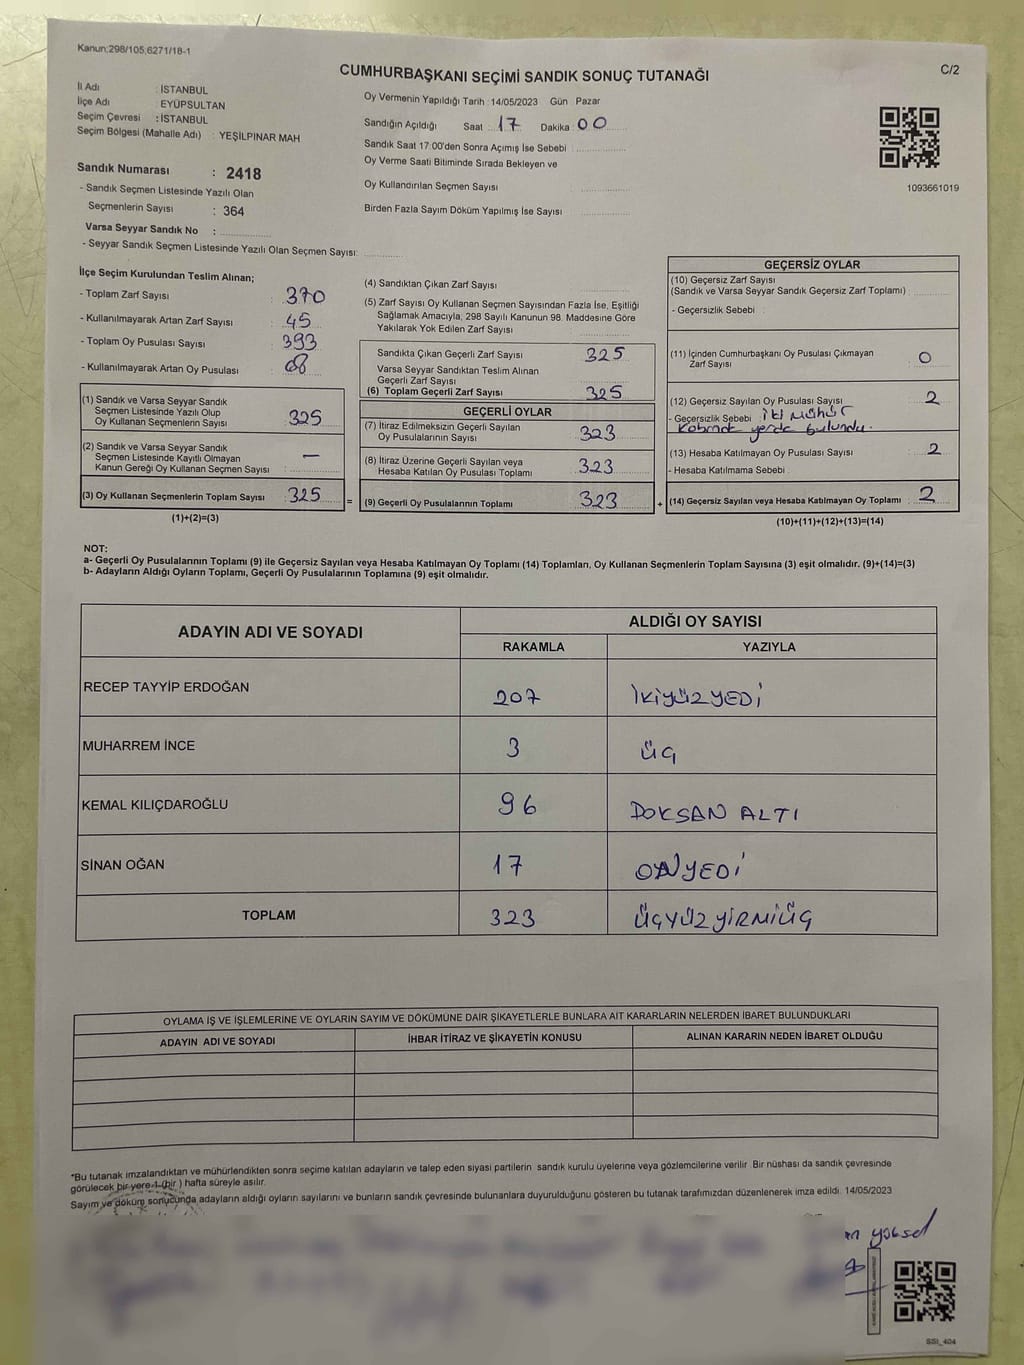 Kanun;298/105,6271/18-1
C/2
CUMHURBAŞKANI SEÇİMİ SANDIK SONUÇ TUTANAĞI
İl Adı : İSTANBUL
İlçe Adı : EYÜPSULTAN
Seçim Çevresi : İSTANBUL
Seçim Bölgesi (Mahalle Adı) : YEŞİLPINAR MAH
Sandık Numarası : 2418
- Sandık Seçmen Listesinde Yazılı Olan
Seçmenlerin Sayısı : 364
Varsa Seyyar Sandık No :
- Seyyar Sandık Seçmen Listesinde Yazılı Olan Seçmen Sayısı:
Oy Vermenin Yapıldığı Tarih : 14/05/2023 Gün Pazar
Sandığın Açıldığı Saat 17 Dakika : 00
Sandık Saat 17:00'den Sonra Açımış İse Sebebi :
Oy Verme Saati Bitiminde Sırada Bekleyen ve
Oy Kullandırılan Seçmen Sayısı
Birden Fazla Sayım Döküm Yapılmış İse Sayısı
1093661019
İlçe Seçim Kurulundan Teslim Alınan;
- Toplam Zarf Sayısı : 370
- Kullanılmayarak Artan Zarf Sayısı : 45
- Toplam Oy Pusulası Sayısı : 393
- Kullanılmayarak Artan Oy Pusulası : 68
(1) Sandık ve Varsa Seyyar Sandık
Seçmen Listesinde Yazılı Olup
Oy Kullanan Seçmenlerin Sayısı : 325
(2) Sandık ve Varsa Seyyar Sandık
Seçmen Listesinde Kayıtlı Olmayan
Kanun Gereği Oy Kullanan Seçmen Sayısı : —
(3) Oy Kullanan Seçmenlerin Toplam Sayısı : 325
(1)+(2)=(3)
=
(4) Sandıktan Çıkan Zarf Sayısı
(5) Zarf Sayısı Oy Kullanan Seçmen Sayısından Fazla İse, Eşitliği
Sağlamak Amacıyla, 298 Sayılı Kanunun 98. Maddesine Göre
Yakılarak Yok Edilen Zarf Sayısı
Sandıkta Çıkan Geçerli Zarf Sayısı 325
Varsa Seyyar Sandıktan Teslim Alınan
Geçerli Zarf Sayısı
(6) Toplam Geçerli Zarf Sayısı 325
GEÇERLİ OYLAR
(7) İtiraz Edilmeksizin Geçerli Sayılan
Oy Pusulalarının Sayısı 323
(8) İtiraz Üzerine Geçerli Sayılan veya
Hesaba Katılan Oy Pusulası Toplamı 323
(9) Geçerli Oy Pusulalarının Toplamı 323
+
GEÇERSİZ OYLAR
(10) Geçersiz Zarf Sayısı
(Sandık ve Varsa Seyyar Sandık Geçersiz Zarf Toplamı) :
- Geçersizlik Sebebi :
(11) İçinden Cumhurbaşkanı Oy Pusulası Çıkmayan
Zarf Sayısı 0
(12) Geçersiz Sayılan Oy Pusulası Sayısı 2
- Geçersizlik Sebebi : iki mühür
yerde bulundu.
(13) Hesaba Katılmayan Oy Pusulası Sayısı : 2
- Hesaba Katılmama Sebebi :
(14) Geçersiz Sayılan veya Hesaba Katılmayan Oy Toplamı : 2
(10)+(11)+(12)+(13)=(14)
NOT:
a- Geçerli Oy Pusulalarının Toplamı (9) ile Geçersiz Sayılan veya Hesaba Katılmayan Oy Toplamı (14) Toplamları, Oy Kullanan Seçmenlerin Toplam Sayısına (3) eşit olmalıdır. (9)+(14)=(3)
b- Adayların Aldığı Oyların Toplamı, Geçerli Oy Pusulalarının Toplamına (9) eşit olmalıdır.
ADAYIN ADI VE SOYADI
ALDIĞI OY SAYISI
RAKAMLA YAZIYLA
RECEP TAYYİP ERDOĞAN 207 İKİYÜZYEDİ
MUHARREM İNCE 3 ÜÇ
KEMAL KILIÇDAROĞLU 96 DOKSAN ALTI
SİNAN OĞAN 17 ONYEDİ
TOPLAM 323 ÜÇYÜZYİRMİÜÇ
OYLAMA İŞ VE İŞLEMLERİNE VE OYLARIN SAYIM VE DÖKÜMÜNE DAİR ŞİKAYETLERLE BUNLARA AİT KARARLARIN NELERDEN İBARET BULUNDUKLARI
ADAYIN ADI VE SOYADI İHBAR İTİRAZ VE ŞİKAYETİN KONUSU ALINAN KARARIN NEDEN İBARET OLDUĞU
*Bu tutanak imzalandıktan ve mühürlendikten sonra seçime katılan adayların ve talep eden siyasi partilerin sandık kurulu üyelerine veya gözlemcilerine verilir. Bir nüshası da sandık çevresinde
görülecek bir yere 1 (bir ) hafta süreyle asılır.
Sayım ve döküm sonucunda adayların aldığı oyların sayılarını ve bunların sandık çevresinde bulunanlara duyurulduğunu gösteren bu tutanak tarafımızdan düzenlenerek imza edildi. 14/05/2023
yüksel
SSI_404